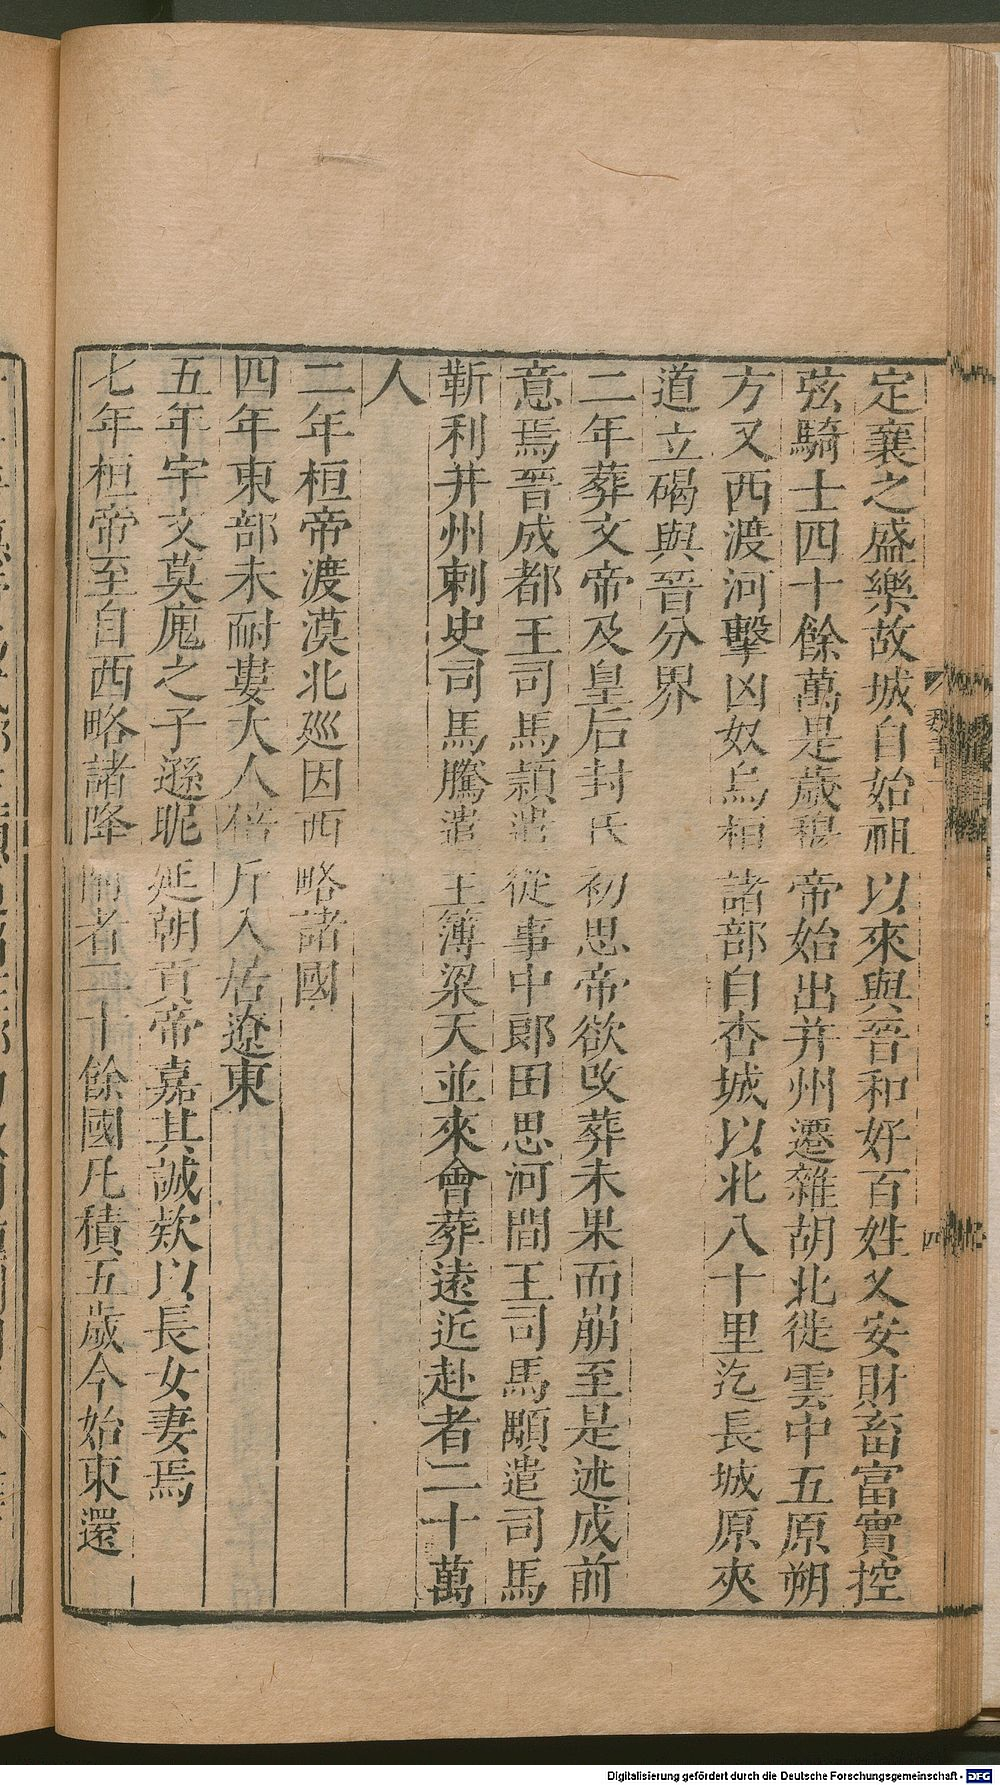 定襄之盛樂故城自始祖以來與晉和好百姓乂安財畜富實控
弦騎士四十餘萬是歲穆帝始出并州遷雜胡北徙雲中五原朔
方又西渡河擊凶奴烏桓諸部自杏城以北八十里迄長城原夾
道立碣與晉分界
二年葬文帝及皇后封氏初思帝欲改葬未果而崩至是述成前
意焉晉成都王司馬穎遣從事中郎田思河間王司馬顒遣司馬
靳利并州刺史司馬騰遣主簿梁天並來會葬遠近赴者二十萬
人
二年桓帝渡漠北巡因西略諸國
四年東部未耐婁大人倍斤入居遼東
五年宇文莫廆之子遜昵延朝貢帝嘉其誠欵以長女妻焉
七年桓帝至自西略諸降附者二十餘國凡積五歲今始東還
魏書一
四
Digitalisierung gefördert durch die Deutsche Forschungsgemeinschaft - DFG